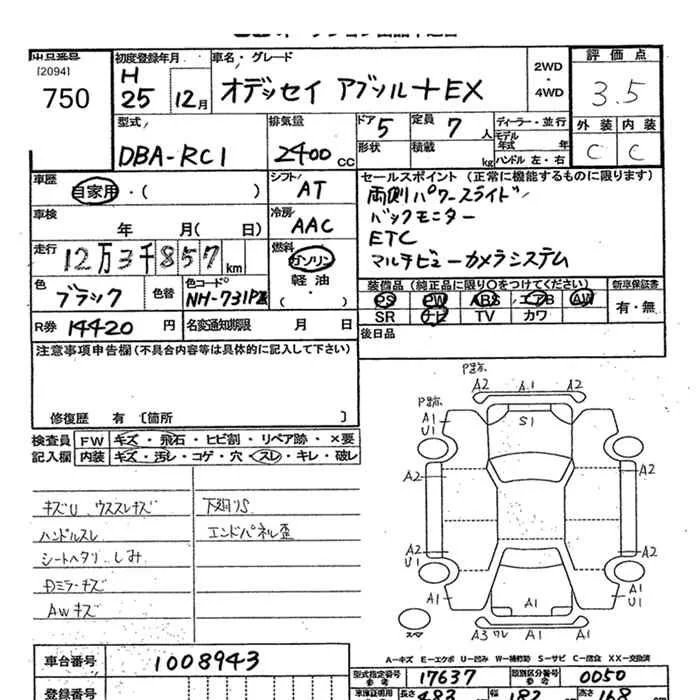 出品番号
(2094)
750
初度登録年月
H
25
12月
車名・グレード
オデッセイ アブソルートEX
2WD
・
4WD
評価点
3.5
型式
DBA-RC1
排気量
2400 CC
ドア
5
形状
定員
7 人
積載
kg
ディーラー・並行
モデル
年式 年
ハンドル 左・右
外装
C
内装
C
車歴
自家用・( )
シフト
AT
セールスポイント (正常に機能するものに限ります)
両側パワースライド
バックモニター
ETC
マルチビューカメラシステム
車検
年 月( 日)
冷房
AAC
走行
12万3千857 km
燃料
ガソリン
軽油
( ・ )
色
ブラック
色替
色コード
NH-731P
装備品 (純正品に限り○をつけてください)
PS PW ABS エアB AW
SR ナビ TV カワ
新車保証書
有・無
R券 14420 円
名変通知期限 月 日
後日品
注意事項申告欄(不具合内容等は具体的に記入して下さい)
修復歴 有 〔箇所 〕
検査員
記入欄
FW キズ・飛石・ヒビ割・リペア跡・×要
内装 キズ・汚レ・コゲ・穴・スレ・キレ・破レ
キズU ウススレキズ
ハンドルスレ
シートヘタリ しみ
Dミラーキズ
AWキズ
下廻リS
エンドパネル歪
P跡
A2 A1 A2
P跡
A1
U1
S1
A1
A2
A2
A2
U1
A2
A1
A1
A1
U1
スペア
A3 ワレ
A1
A−キズ E−エクボ U−凹み W−補修跡 S−サビ C−腐食 XX−交換済
車台番号
1008943
型式指定番号
参考
17637
類別区分番号
参考
0050
登録番号
車庫証明用
参考
長さ
483
幅
182
高さ
168